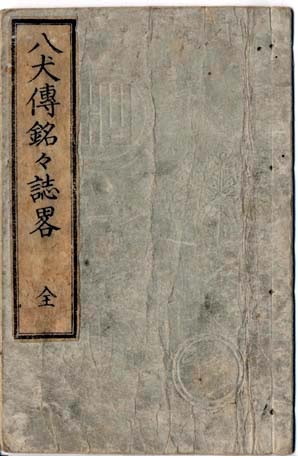 八犬傳銘々誌畧
全